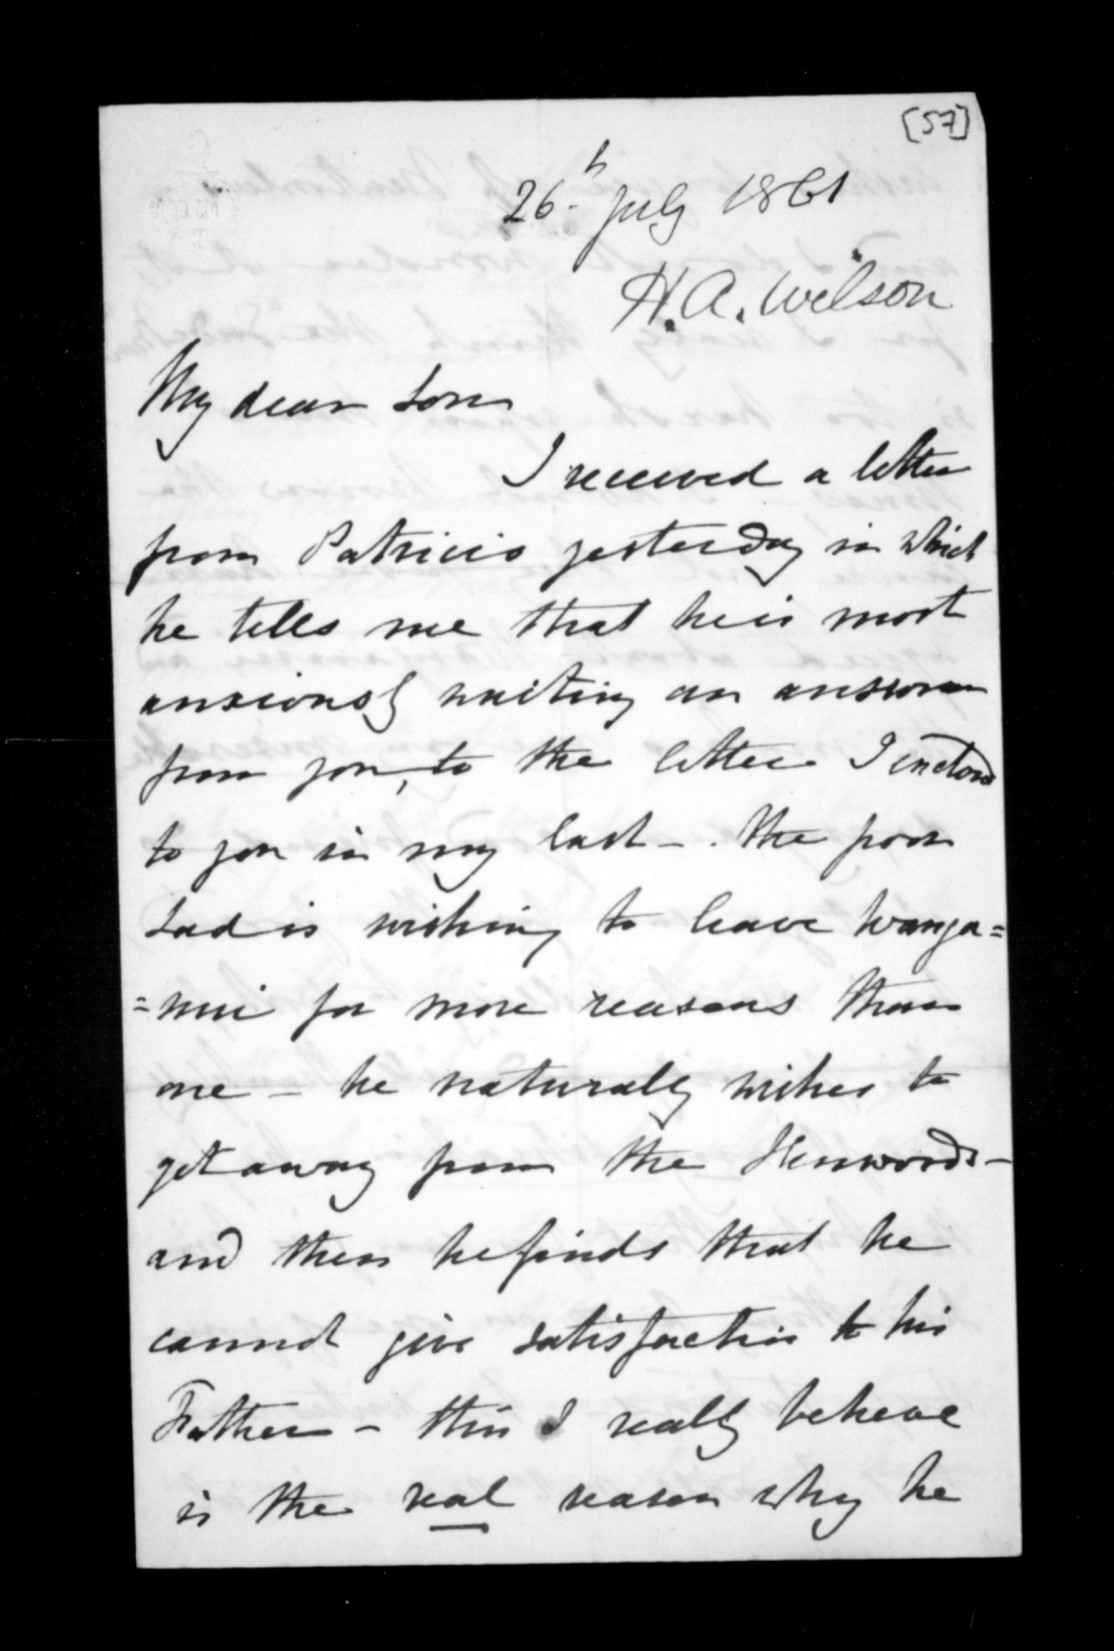 [57]
26th July 1861
H. A. Wilson
My dear Son
I received a letter
from Patricio yesterday in which
he tells me that he is most
anxiously waiting an answer
from you, to the letter I enclosed
to you in my last - . The poor
Lad is wishing to leave Wanga=
=nui for more reasons than
one - he naturally wishes to
get away from the Henwoods -
and then he finds that he
cannot give satisfaction to his
Father - this I really believe
is the real reason why he